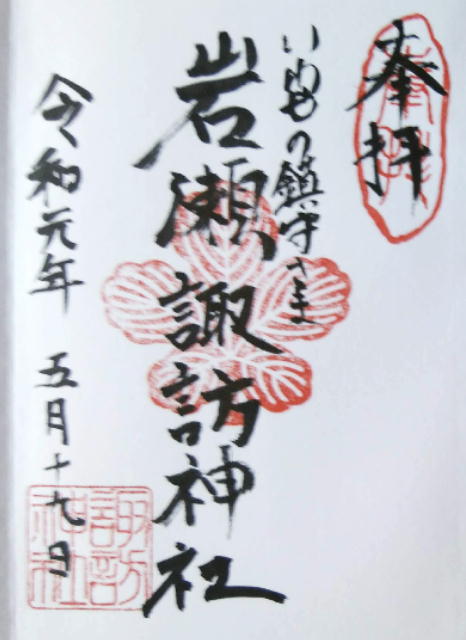 奉拝
いわせの鎮守さま
岩瀬諏訪神社
令和元年 五月十九日
諏訪
神社